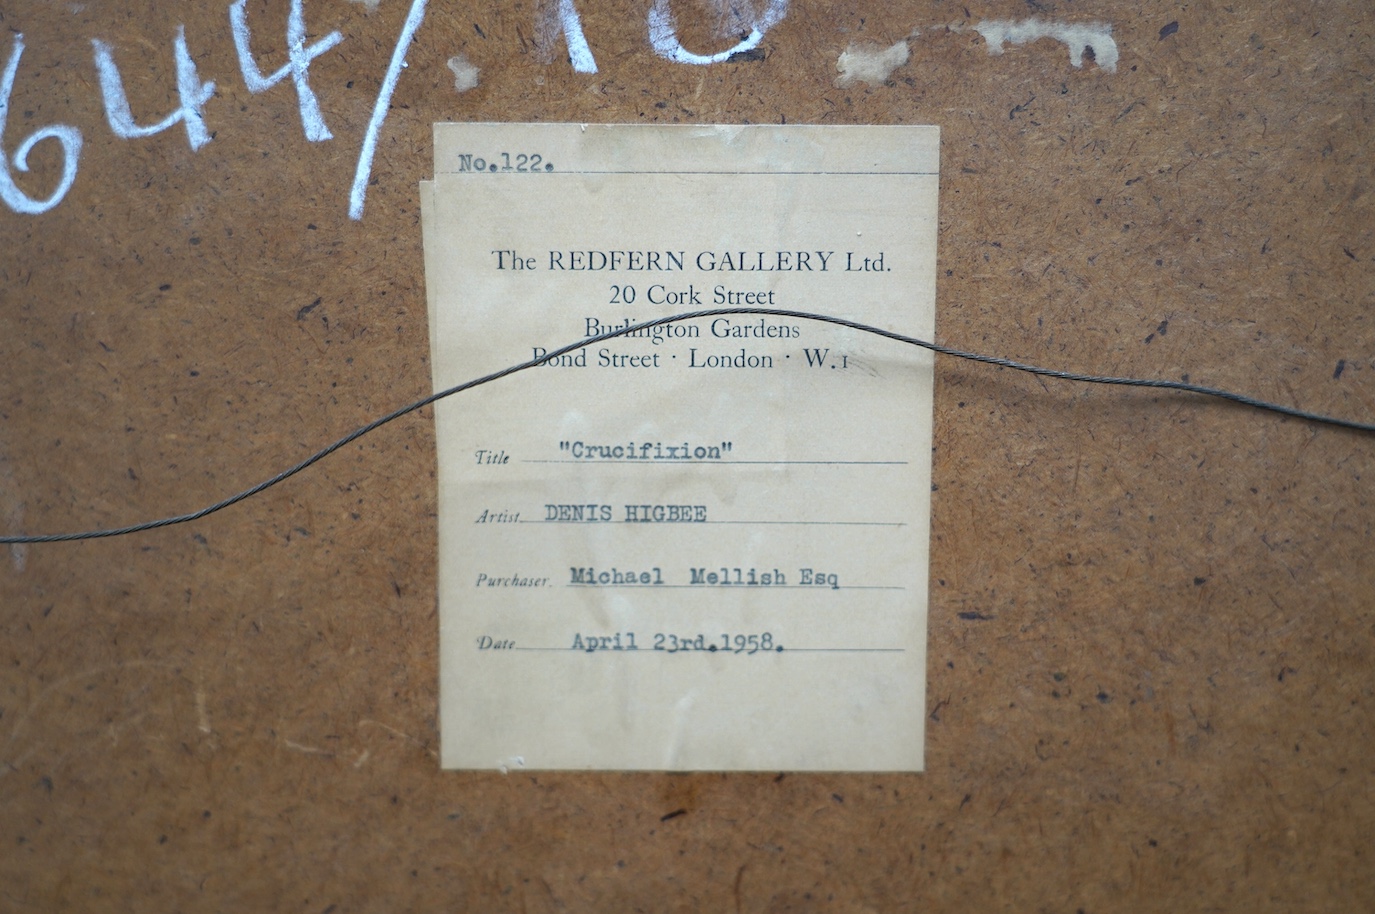 644/.10
No.122.
The REDFERN GALLERY Ltd.
20 Cork Street
Burlington Gardens
Bond Street · London · W.1
Title "Crucifixion"
Artist DENIS HIGBEE
Purchaser Michael Mellish Esq
Date April 23rd.1958.